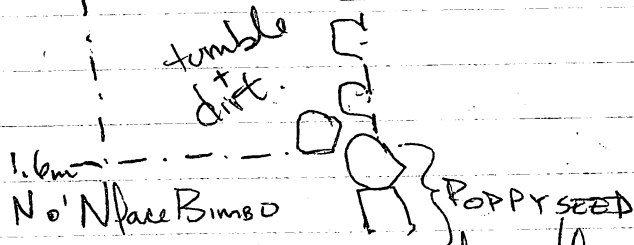 tumble
+
dirt.
1.6m
No'NfaceBimBo
POPPYSEED